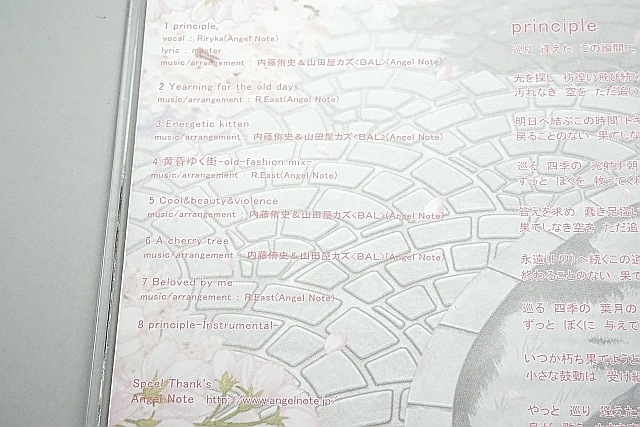 1 principle
vocal : Riryka(Angel Note)
lyric : master
music/arrangement : 内藤侑史＆山田屋カズ<BAL>(Angel Note)
2 Yearning for the old days
music/arrangement : R.East(Angel Note)
3 Energetic kitten
music/arrangement : 内藤侑史＆山田屋カズ<BAL>(Angel Note)
4 黄昏ゆく街-old-fashion mix-
music/arrangement : R.East(Angel Note)
5 Cool&beauty&violence
music/arrangement : 内藤侑史＆山田屋カズ<BAL>(Angel Note)
6 A cherry tree
music/arrangement : 内藤侑史＆山田屋カズ<BAL>(Angel Note)
7 Beloved by me
music/arrangement : R.East(Angel Note)
8 principle-Instrumental-
Spcel Thank's
Angel Note http://www.angelnote.jp/
principle
巡り 逢えた この瞬間に
光を探し 彷徨い飛び続
汚れなき 空を ただ追い
明日へ結ぶこの時間(トキ
戻ることのない 果てしな
巡る 四季の 光射す朝
ずっと ぼくを 救ってくれ
答えを求め 蠢き足掻
果てしなき空を ただ追
永遠(トワ)へ続くこの道
終わることのない 果て
巡る 四季の 葉月の
ずっと ぼくに 与えて
いつか朽ち果てようと
小さな鼓動は 受け継
やっと 巡り 逢えた